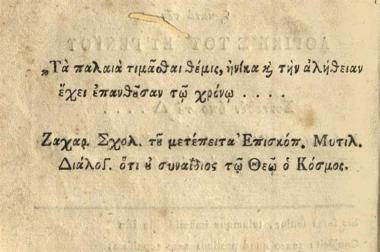 „Τὰ παλαιὰ τιμᾶσθαι θέμις, ἡνίκα ϗ τὴν ἀλήθειαν
ἔχει ἐπανθȣ͂σαν τῷ χρόνῳ . . . .
Ζαχαρ. Σχολ. τȣ͂ μετέπειτα Ἐπισκόπ. Μυτιλ.
Διάλογ. ὅτι ȣ̓ συναΐδιος τῷ Θεῷ ὁ Κόσμος.